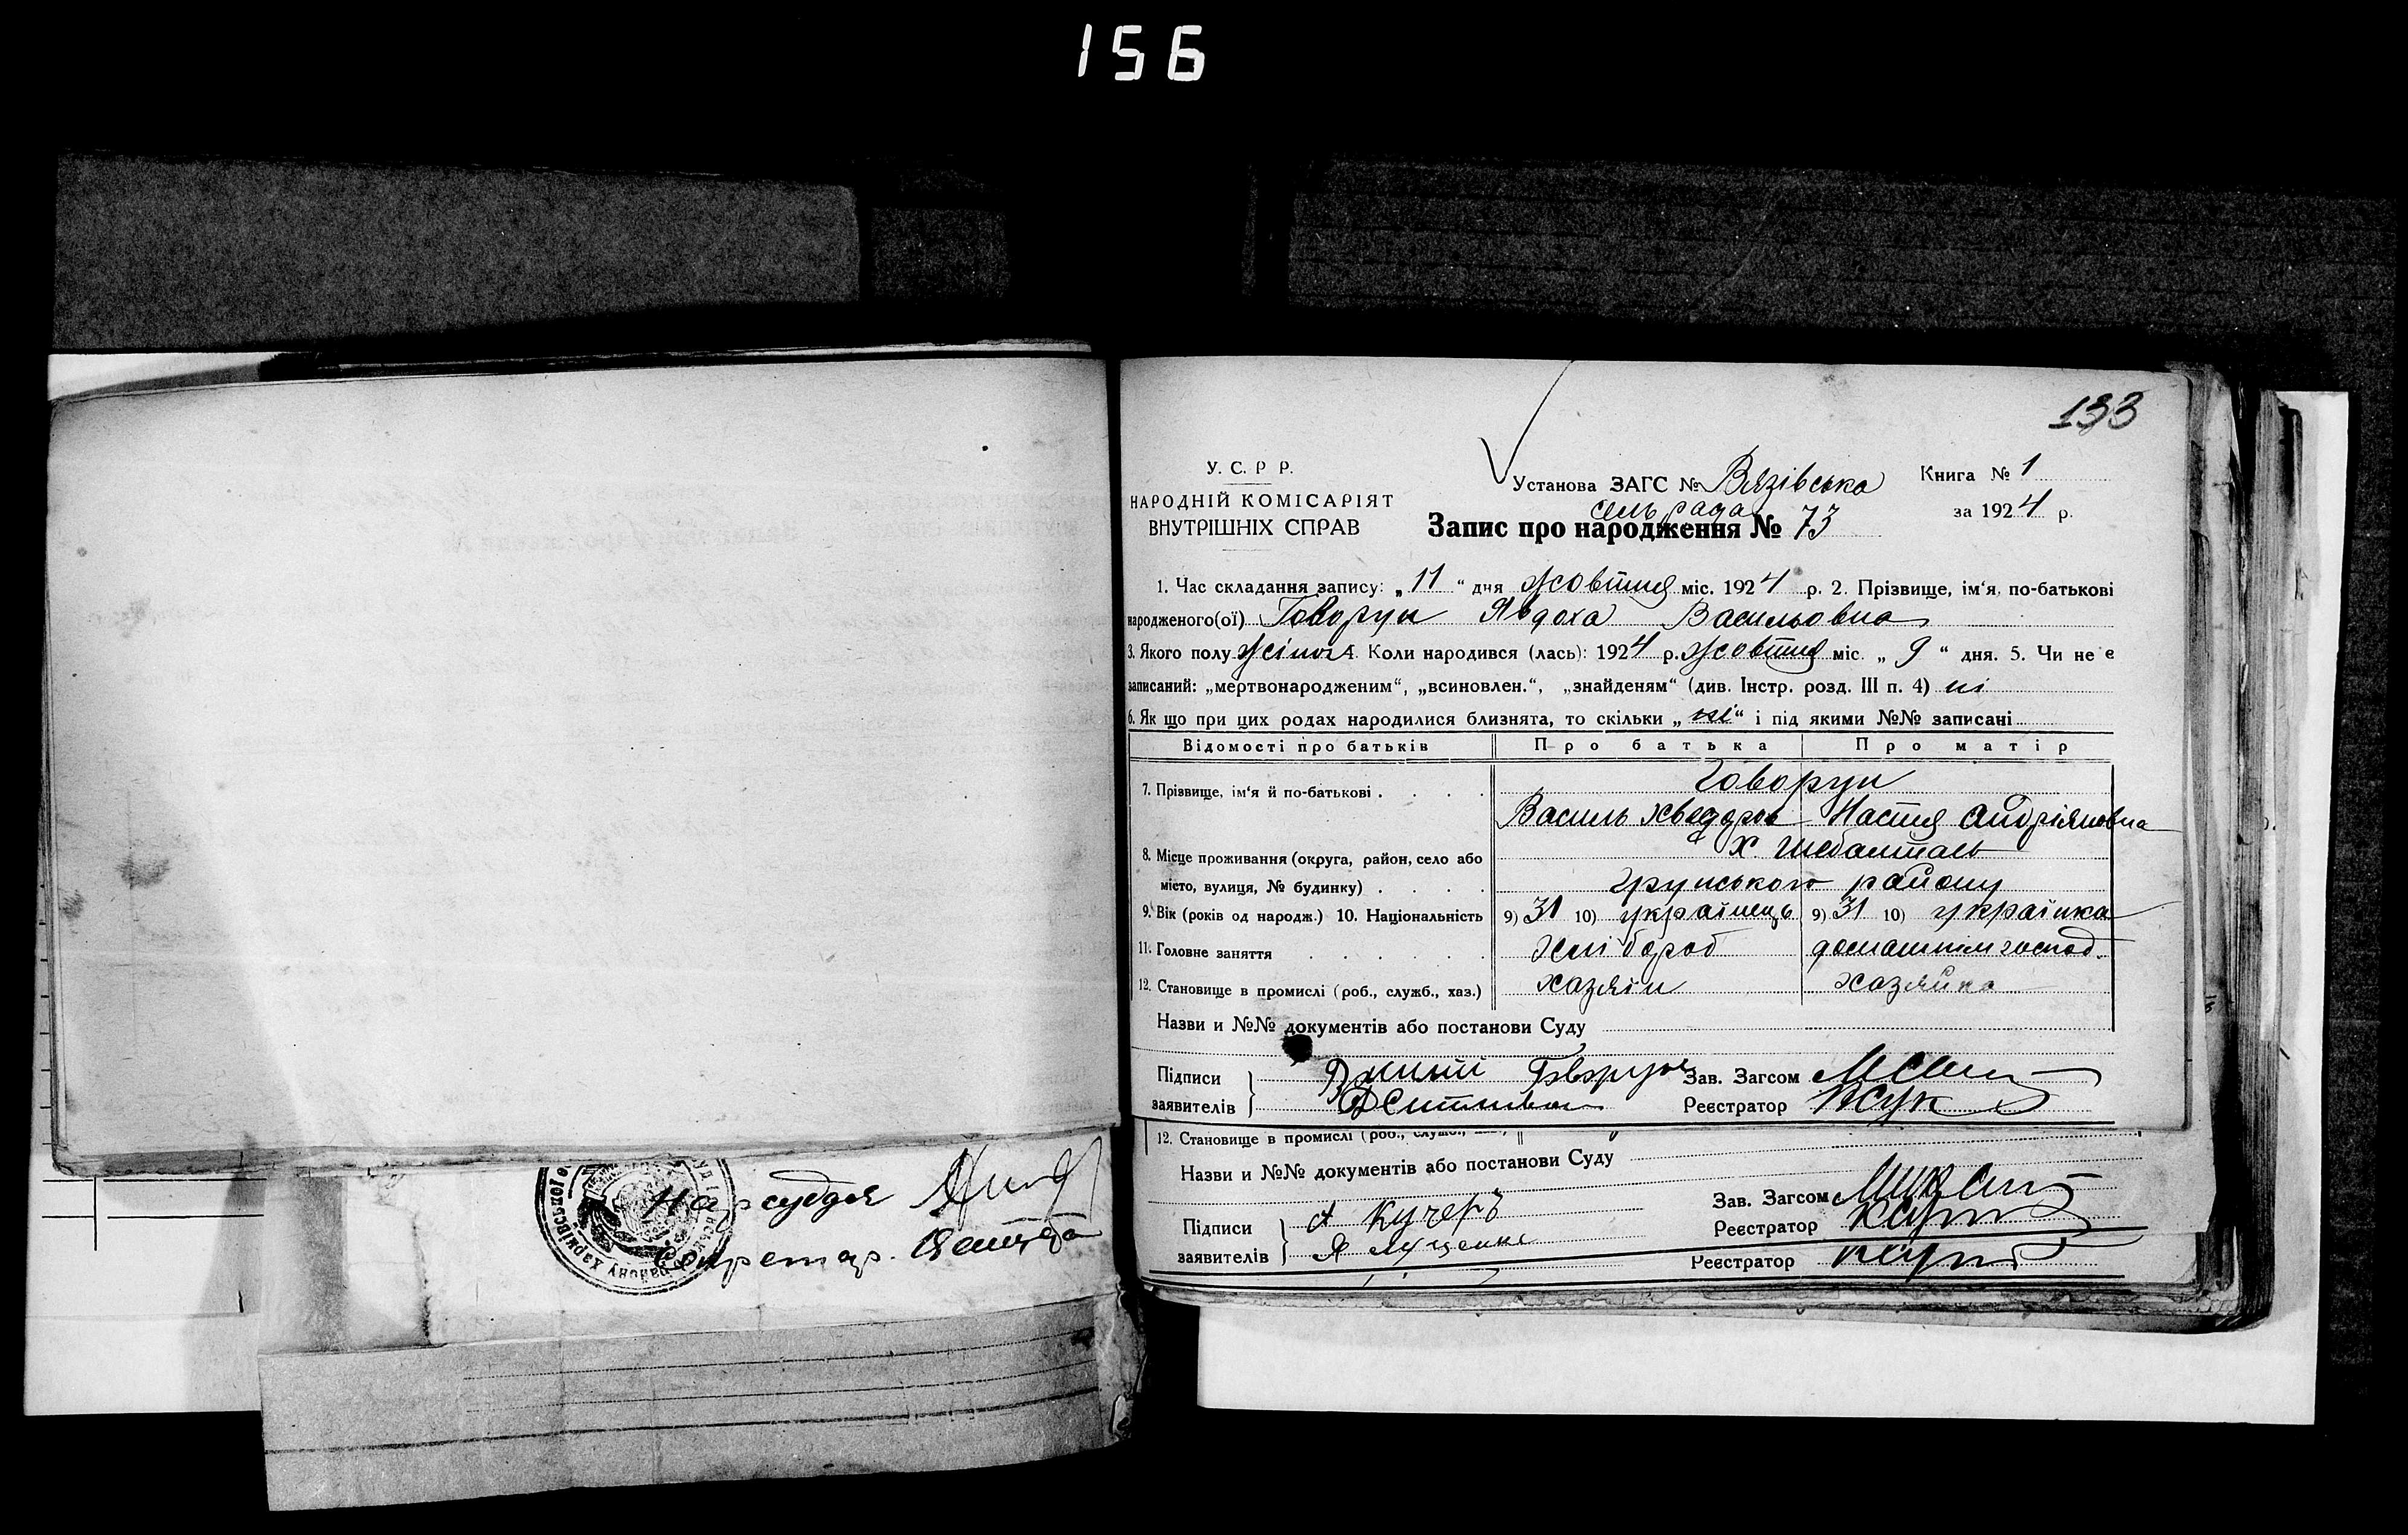 156
133
У. С. Р Р.
НАРОДНІЙ КОМІСАРІЯТ
ВНУТРІШНІХ СПРАВ
Установа ЗАГС № Вязівська
сель рада
Книга № 1
за 1924 р.
Запис про народження № 73
1. Час складання запису: „11“ дня жовтня міс. 1924 р. 2. Прізвище, ім'я, по-батькові
народженого(ої) Говорун Явдоха Васильовна
3. Якого полу жіноч 4. Коли народився (лась): 1924 р. жовтня міс. „9“ дня. 5. Чи не є
записаний: „мертвонародженим“, „всиновлен.“, „знайденям“ (див. Інстр. розд. III п. 4) ні
6. Як що при цих родах народилися близнята, то скільки „ні“ і під якими №№ записані
Відомості про батьків Про батька Про матір
7. Прізвище, ім'я й по-батькові . . . . Говорун
Василь Хведоров Настя Андріяновна
8. Місце проживання (округа, район, село або х.
місто, вулиця, № будинку) . . . . грунського району
9. Вік (років од народж.) 10. Національність 9) 31 10) українець 9) 31 10) українка
11. Головне заняття . . . . . . хлібороб домашнім господ.
12. Становище в промислі (роб., служб., хаз.) хазяін хазяйка
Назви и №№ документів або постанови Суду
Підписи Говорун Зав. Загсом
заявителів Реєстратор Жук
12. Становище в промислі (роб., служб., хаз.)
Назви и №№ документів або постанови Суду
Зав. Загсом
Підписи А Кучеръ Реєстратор
заявителів Я Луценко
Реєстратор
Нарсуддя
Секретар.